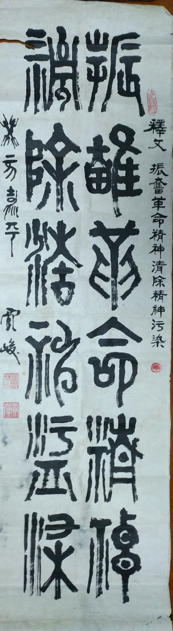 釋文 振奮革命精神清除精神污染
振奮革命精神
清除精神污染
癸亥嘉平 峻